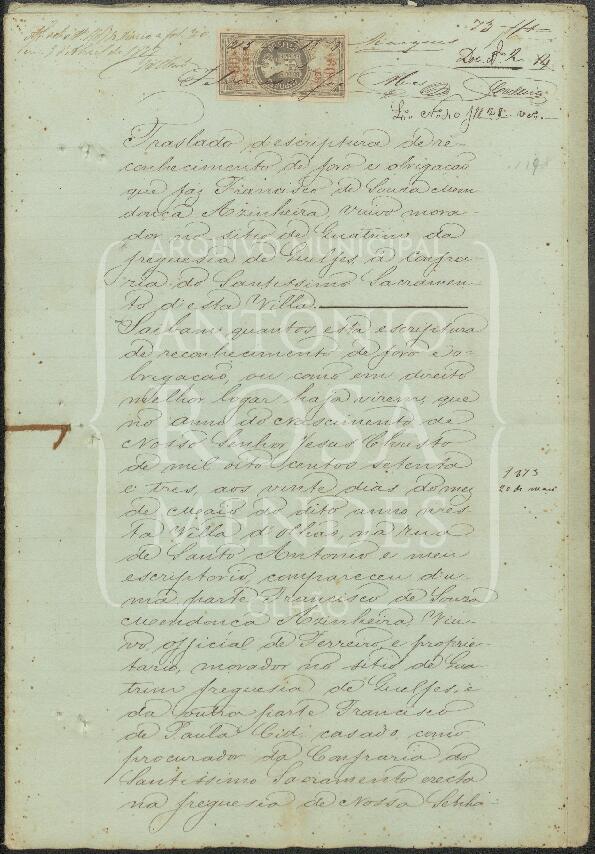 73
Marques
Doc. Nº 2
Traslado d'escriptura de re-
conhecimento de foro e obrigação
que faz Francisco de Souza Men-
donça Azinheira, Viuvo mora-
dor no sitio de Quatrim da
freguesia de Quelfes á Confra-
ria do Santissimo Sacramen-
to d'esta Villa.
Saibam quantos esta escriptura
de reconhecimento de foro e o-
brigação ou como em direito
melhor logar haja virem, que
no anno do Nascimento de
Nosso Senhor Jesus Christo
de mil oito centos setenta
e tres, aos vinte dias do mez
de Maio do dito anno n'es-
ta Villa d'Olhão, na rua
de Santo Antonio e meu
escriptorio, compareceu d'u-
ma parte Francisco de Souza
Mendonça Azinheira Viu-
vo, official de Ferreiro, e proprie-
tario, morador no sitio de Qua-
trim freguesia de Quelfes, e
da outra parte Francisco
de Paula Cid, casado, como
procurador da Confraria do
Santissimo Sacramento erecta
na freguesia de Nossa Senho-
1873
20 de maio
ARQUIVO MUNICIPAL
ANTÓNIO
ROSA
MENDES
OLHÃO